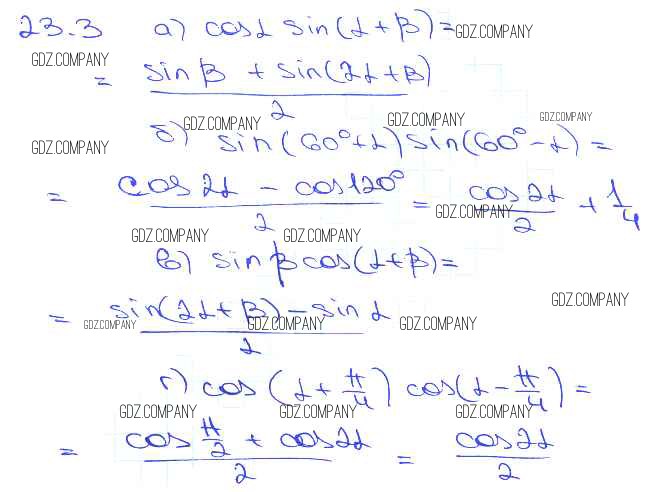 23.3 а) cosα sin(α+β)=
GDZ.COMPANY
GDZ.COMPANY
= (sinβ + sin(2α+β))/2
GDZ.COMPANY
GDZ.COMPANY
GDZ.COMPANY
б) sin(60°+α)sin(60°-α) =
GDZ.COMPANY
= (cos2α - cos120°)/2 = cos2α/2 + 1/4
GDZ.COMPANY
GDZ.COMPANY
GDZ.COMPANY
в) sinβcos(α+β)=
GDZ.COMPANY
= (sin(2α+β)-sinα)/2
GDZ.COMPANY
GDZ.COMPANY
GDZ.COMPANY
г) cos(α+π/4) cos(α-π/4) =
GDZ.COMPANY
GDZ.COMPANY
GDZ.COMPANY
= (cos π/2 + cos2α)/2 = cos2α/2